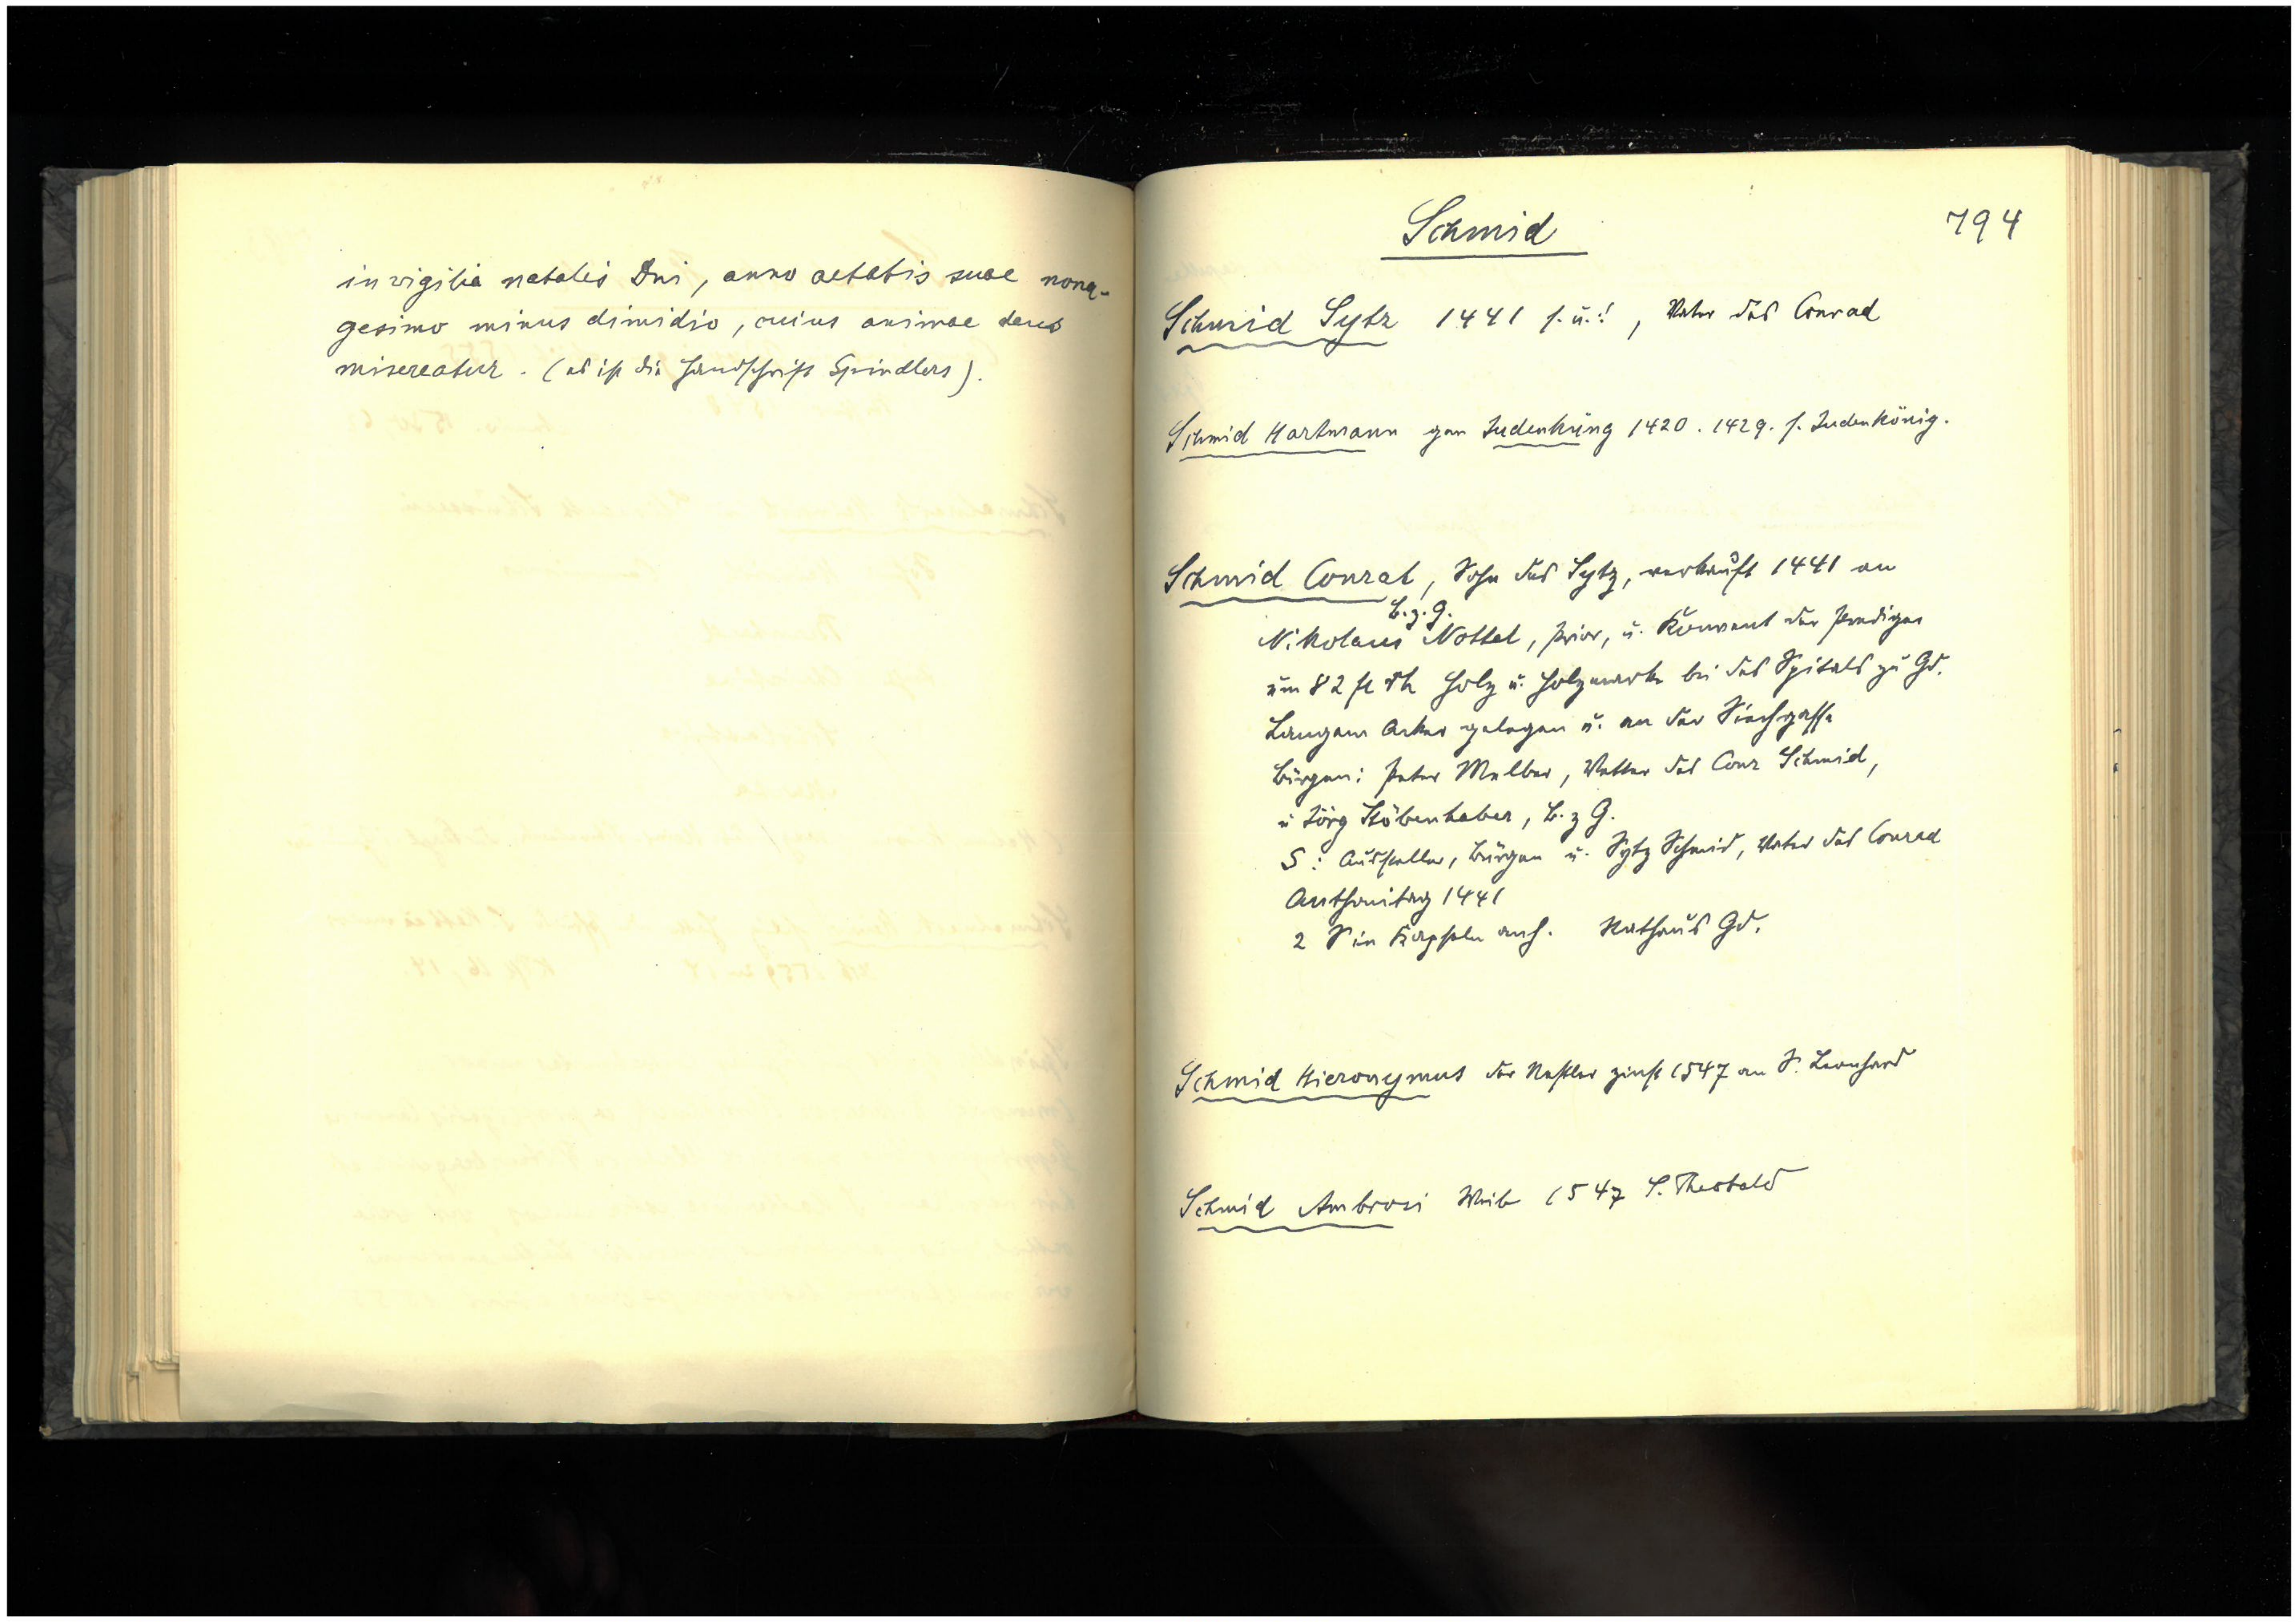 in vigilia natalis Dni, anno aetatis suae nona-
gesimo minus dimidio, cuius animae deus
misereatur. (es ist die Handschrift Spindlers).
Schmid
794
Schmid Sytz 1441 s. u.!, Vater des Conrad
Schmid Hartmann gen Judenküng 1420. 1429. s. Judenkönig.
Schmid Conrat, Sohn des Sytz, verkauft 1441 an
B.z.G.
Nikolaus Nottel, Prior, u. Konvent der Prediger
um 82 fl rh Holz u. Holzmark bei des Spitals zu Gd.
Langem Acker gelegen u. an der Siechgasse
Bürgen: Peter Melber, Vetter des Conr Schmid,
u Jörg Stöbenhaber, B. z G.
S: Aussteller, Bürgen u. Sytz Schmid, Vater des Conrad
Anthonitag 1441
2 S in Kapseln anh. Rathaus Gd.
Schmid Hieronymus der Nestler zinst 1547 an S. Leonhard
Schmid Ambrosi Weib 1547 S. Theobald